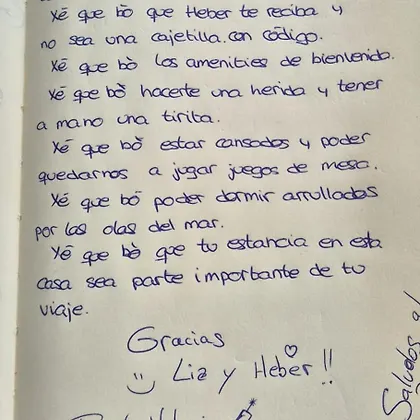 Xé que bò que Heber te reciba y
no sea una cajetilla con código.
Xé que bò los amenities de bienvenida.
Xé que bò hacerte una herida y tener
a mano una tirita.
Xé que bò estar cansados y poder
quedarnos a jugar juegos de mesa.
Xé que bò poder dormir arrullados
por las olas del mar.
Xé que bò que tu estancia en esta
casa sea parte importante de tu
viaje.
Gracias
Liz y Heber !!
Saludos a